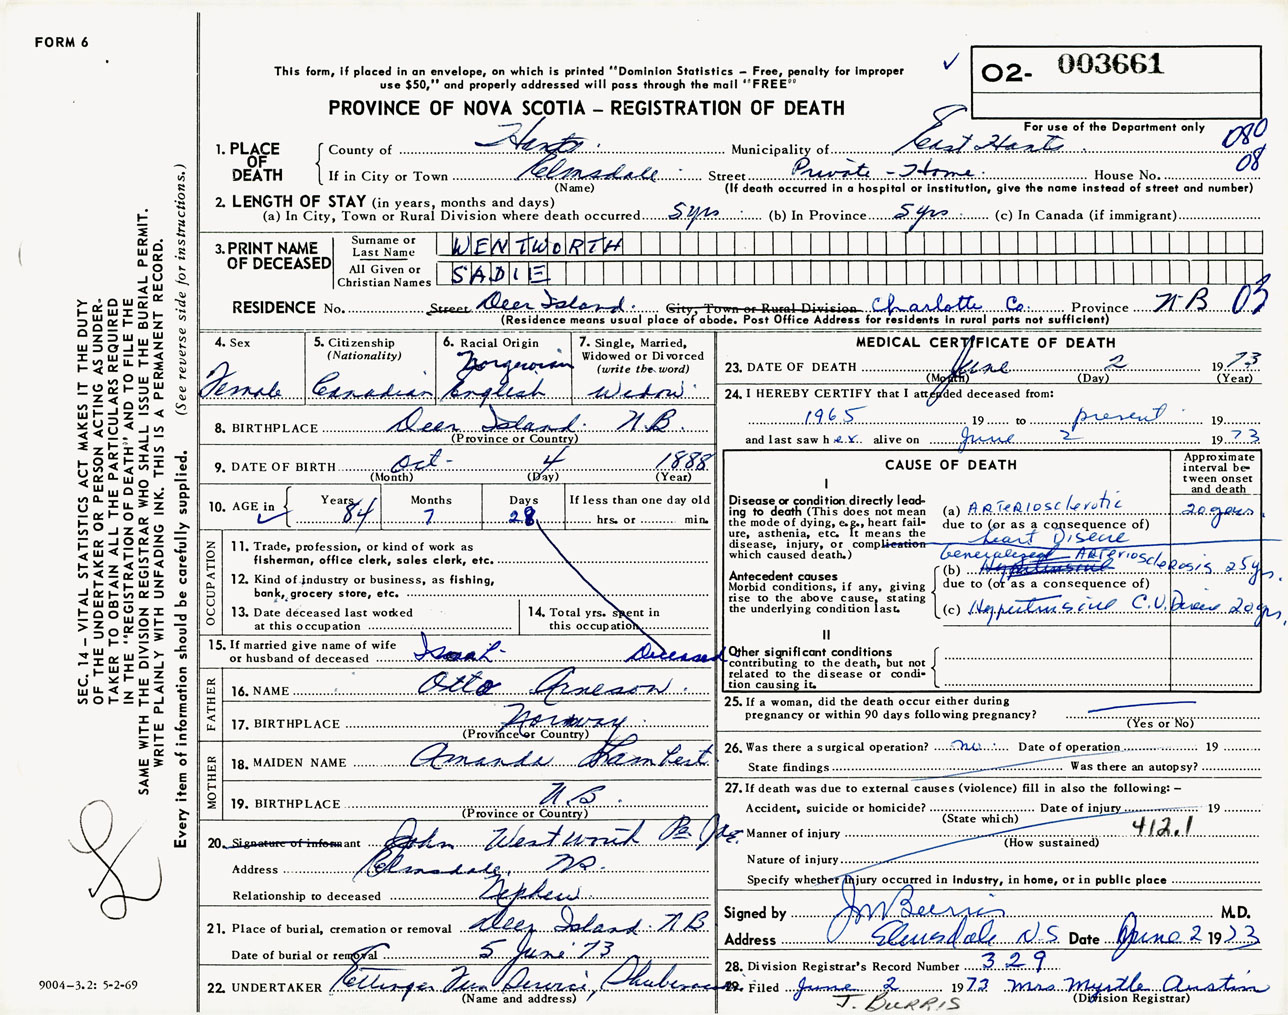 FORM 6
This form, if placed in an envelope, on which is printed "Dominion Statistics – Free, penalty for improper
use $50," and properly addressed will pass through the mail "FREE"
✓ O2- 003661
PROVINCE OF NOVA SCOTIA – REGISTRATION OF DEATH
For use of the Department only
1. PLACE OF DEATH
County of Hants Municipality of East Hants 080
If in City or Town Elmsdale Street Private - Home House No. 08
(Name) (If death occurred in a hospital or institution, give the name instead of street and number)
2. LENGTH OF STAY (in years, months and days)
(a) In City, Town or Rural Division where death occurred 5 yrs (b) In Province 5 yrs (c) In Canada (if immigrant)
3. PRINT NAME OF DECEASED
Surname or Last Name WENTWORTH
All Given or Christian Names SADIE
RESIDENCE No. Street Deer Island. City, Town or Rural Division Charlotte Co. Province N B 03
(Residence means usual place of abode. Post Office Address for residents in rural parts not sufficient)
4. Sex
Female
5. Citizenship
(Nationality)
Canadian
6. Racial Origin
Norgewian
English
7. Single, Married,
Widowed or Divorced
(write the word)
Widow
8. BIRTHPLACE Deer Island. N.B.
(Province or Country)
9. DATE OF BIRTH Oct- 4 1888
(Month) (Day) (Year)
10. AGE in ✓ Years 84 Months 7 Days 28 If less than one day old
hrs. or min.
OCCUPATION
11. Trade, profession, or kind of work as
fisherman, office clerk, sales clerk, etc.
12. Kind of industry or business, as fishing,
bank, grocery store, etc.
13. Date deceased last worked
at this occupation
14. Total yrs. spent in
this occupation
15. If married give name of wife
or husband of deceased Deceased
FATHER
16. NAME Otto Arneson.
17. BIRTHPLACE Norway.
(Province or Country)
MOTHER
18. MAIDEN NAME Amanda Lambert
19. BIRTHPLACE N B.
(Province or Country)
20. Signature of informant John Wentworth
Address Elmsdale, NS.
Relationship to deceased Nephew
21. Place of burial, cremation or removal Deer Island. N.B
Date of burial or removal 5 June '73
22. UNDERTAKER
(Name and address)
MEDICAL CERTIFICATE OF DEATH
23. DATE OF DEATH June 2 1973
(Month) (Day) (Year)
24. I HEREBY CERTIFY that I attended deceased from:
1965 19 to present 19
and last saw her alive on June 2 1973
CAUSE OF DEATH
Approximate
interval be-
tween onset
and death
I
Disease or condition directly lead-
ing to death (This does not mean
the mode of dying, e.g., heart fail-
ure, asthenia, etc. It means the
disease, injury, or complication
which caused death.)
(a) ARTERIOSCLEROTIC 20 years.
due to (or as a consequence of)
heart Disease
Antecedent causes
Morbid conditions, if any, giving
rise to the above cause, stating
the underlying condition last.
Generalized ARTERIOSCLEROSIS 25 yrs.
(b) Hypertensive
due to (or as a consequence of)
(c) Hypertensive C.V. Disease 20 yrs.
II
Other significant conditions
contributing to the death, but not
related to the disease or condi-
tion causing it.
25. If a woman, did the death occur either during
pregnancy or within 90 days following pregnancy?
(Yes or No)
26. Was there a surgical operation? no Date of operation 19
State findings Was there an autopsy?
27. If death was due to external causes (violence) fill in also the following: –
Accident, suicide or homicide? Date of injury 19
(State which)
Manner of injury 412.1
(How sustained)
Nature of injury
Specify whether injury occurred in industry, in home, or in public place
Signed by JM Burris M.D.
Address Elmsdale N.S. Date June 2 1973
28. Division Registrar's Record Number 329
29. Filed June 2 1973 Mrs Myrtle Austin
(Division Registrar)
J. BURRIS
SEC. 14 – VITAL STATISTICS ACT MAKES IT THE DUTY
OF THE UNDERTAKER OR PERSON ACTING AS UNDER-
TAKER TO OBTAIN ALL THE PARTICULARS REQUIRED
IN THE "REGISTRATION OF DEATH" AND TO FILE THE
SAME WITH THE DIVISION REGISTRAR WHO SHALL ISSUE THE BURIAL PERMIT.
WRITE PLAINLY WITH UNFADING INK. THIS IS A PERMANENT RECORD.
Every item of information should be carefully supplied. (See reverse side for instructions.)
9004-3.2: 5-2-69